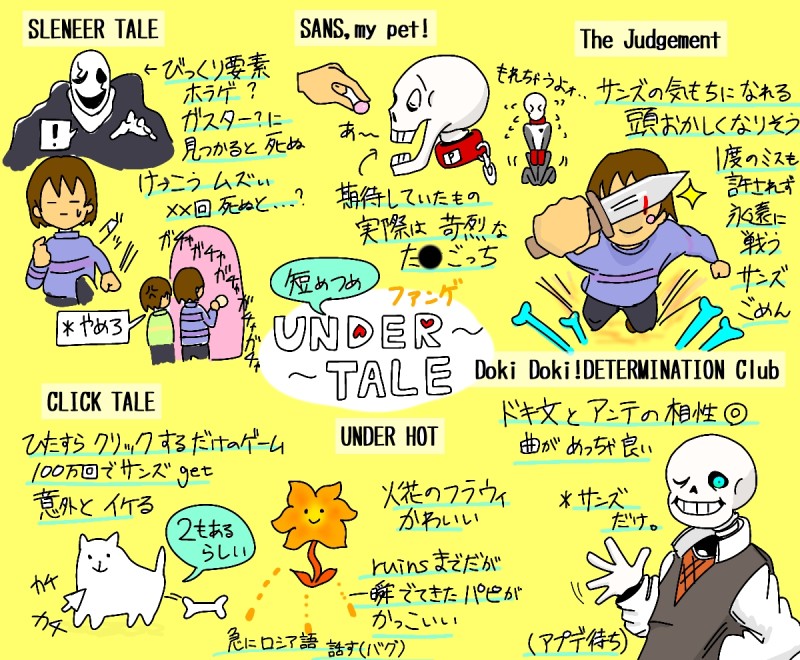 SLENEER TALE
←びっくり要素
ホラゲ?
ガスター?に
見つかると死ぬ
!
けっこうムズい
××回死ぬと...?
ダッ
ガチャガチャガチャガチャガチャ
*やめろ
SANS,my pet!
あ~
もれちゃうよォ..
P
期待していたもの
実際は苛烈な
た●ごっち
The Judgement
サンズの気もちになれる
頭おかしくなりそう
1度のミスも
許されず
永遠に
戦う
サンズ
ごめん
短めつめ
ファンゲ
UNDER~
~TALE
CLICK TALE
ひたすらクリックするだけのゲーム
100万回でサンズget
意外とイケる
2もある
らしい
カチ
カタ
UNDER HOT
火花のフラウィ
かわいい
ruinsまでだが
一瞬でてきたパピが
かっこいい
急にロシア語
話す(バグ)
Doki Doki!DETERMINATION Club
ドキ文とアンテの相性◎
曲がめっちゃ良い
*サンズ
だけ。
(アプデ待ち)